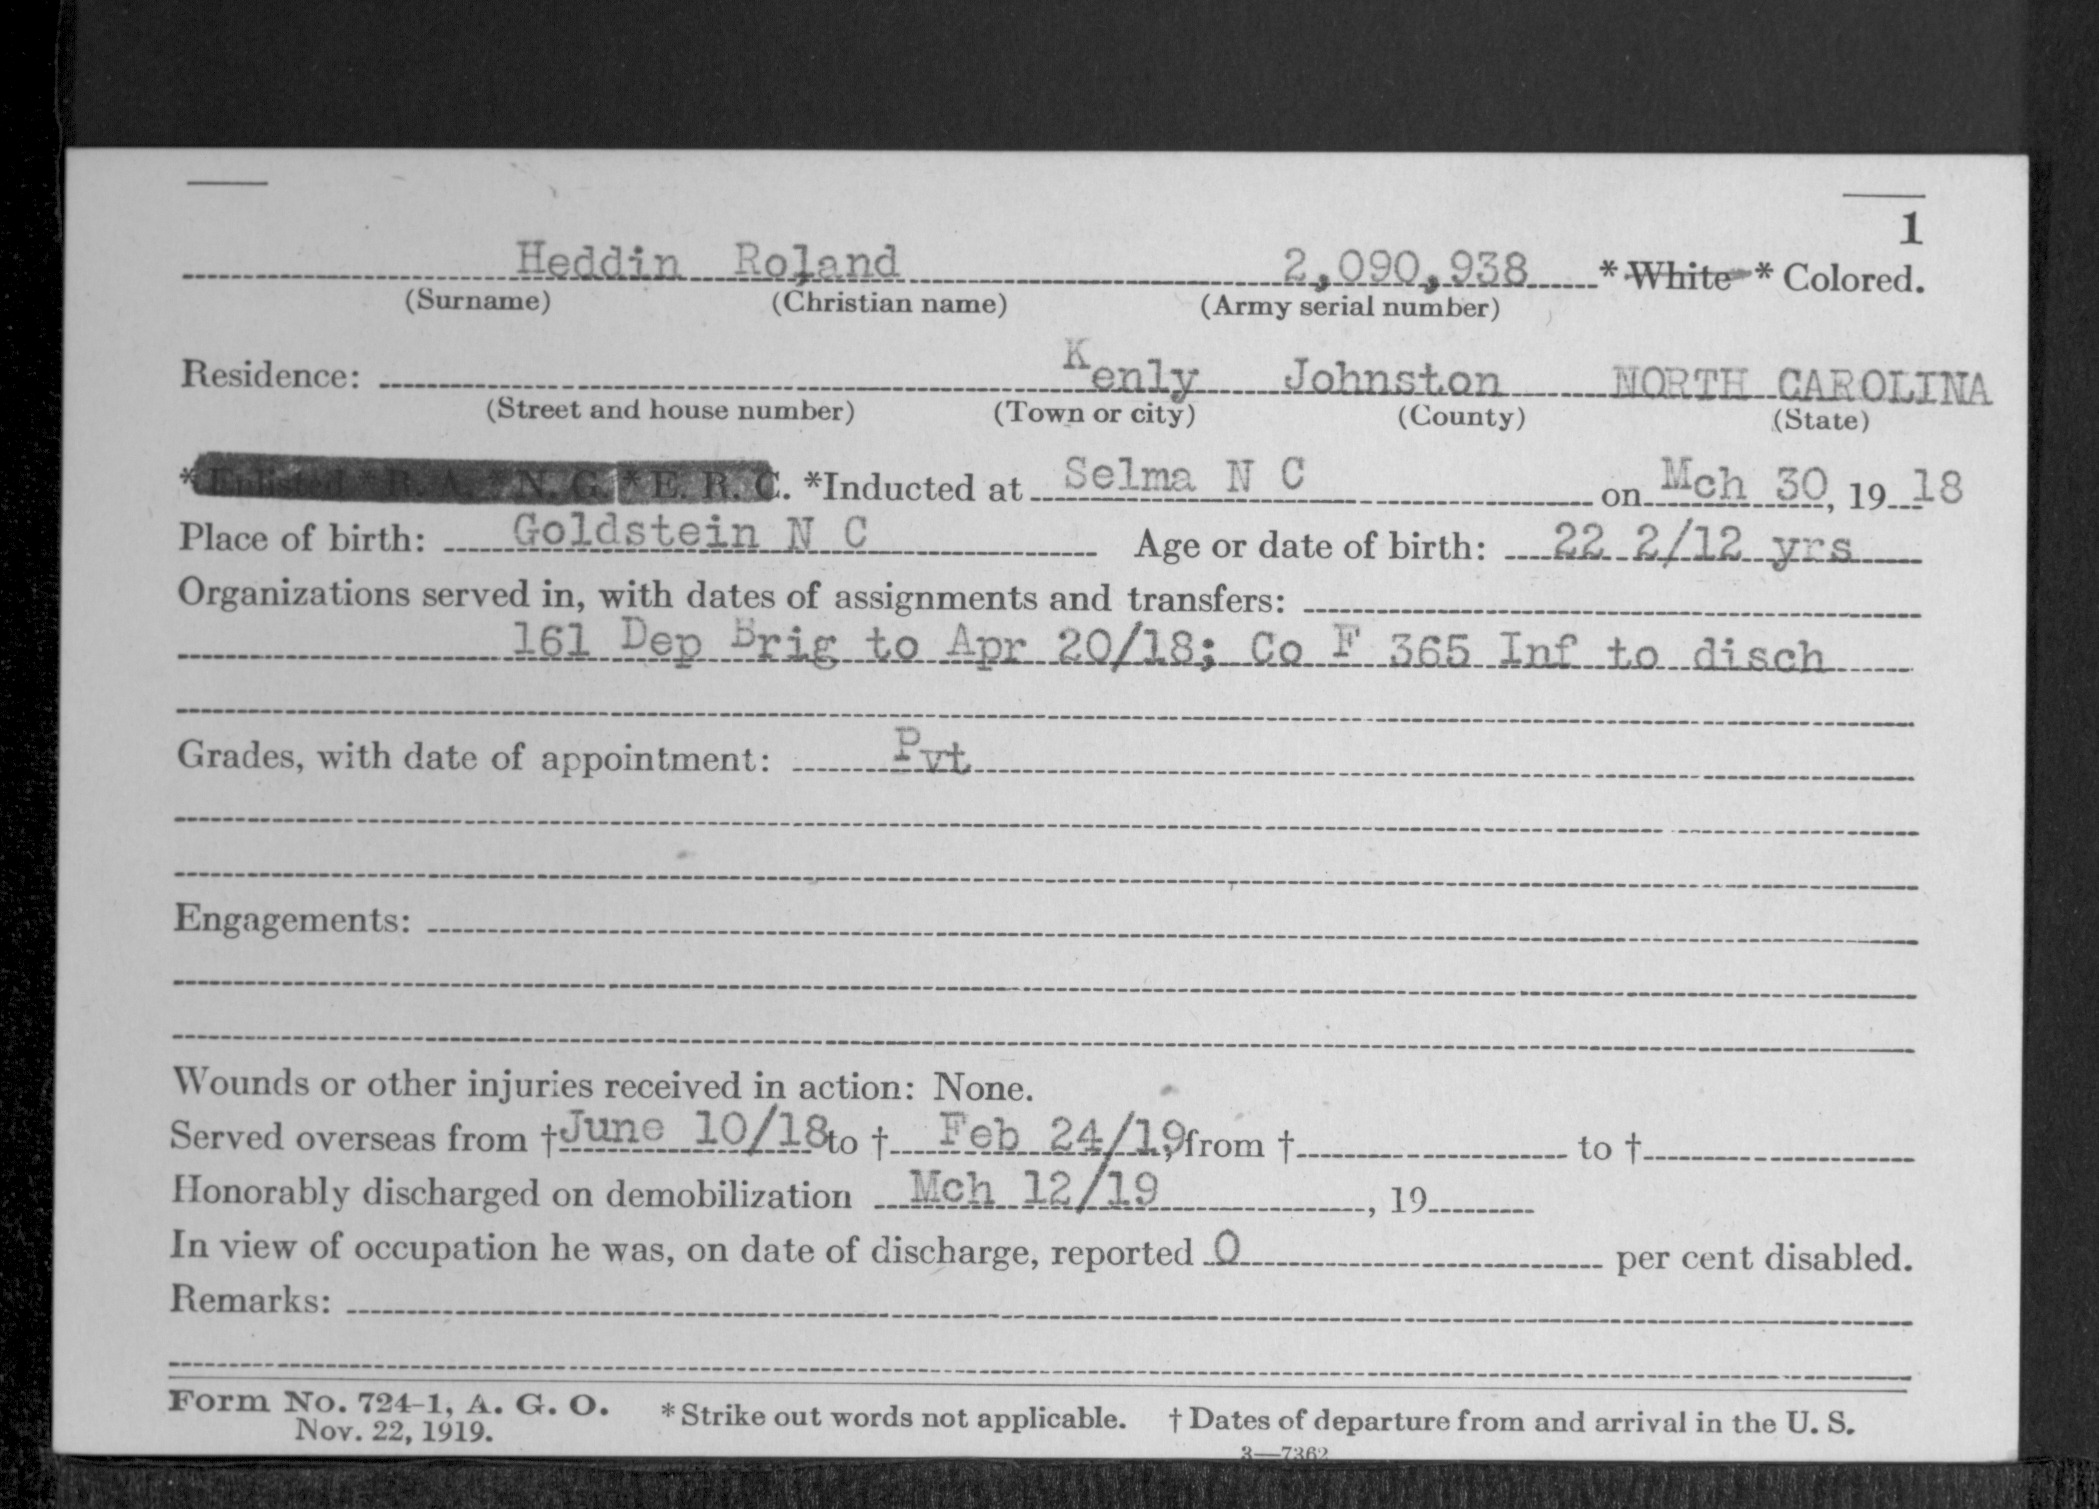 1
Heddin Roland 2,090,938 * White * Colored.
(Surname) (Christian name) (Army serial number)
Residence: Kenly Johnston NORTH CAROLINA
(Street and house number) (Town or city) (County) (State)
* Enlisted * R. A. * N. G. * E. R. C. *Inducted at Selma N C on Mch 30, 19 18
Place of birth: Goldstein N C Age or date of birth: 22 2/12 yrs
Organizations served in, with dates of assignments and transfers:
161 Dep Brig to Apr 20/18; Co F 365 Inf to disch
Grades, with date of appointment: Pvt
Engagements:
Wounds or other injuries received in action: None.
Served overseas from † June 10/18 to † Feb 24/19, from † to †
Honorably discharged on demobilization Mch 12/19 , 19
In view of occupation he was, on date of discharge, reported 0 per cent disabled.
Remarks:
Form No. 724-1, A. G. O. * Strike out words not applicable. † Dates of departure from and arrival in the U. S.
Nov. 22, 1919.
3—7362